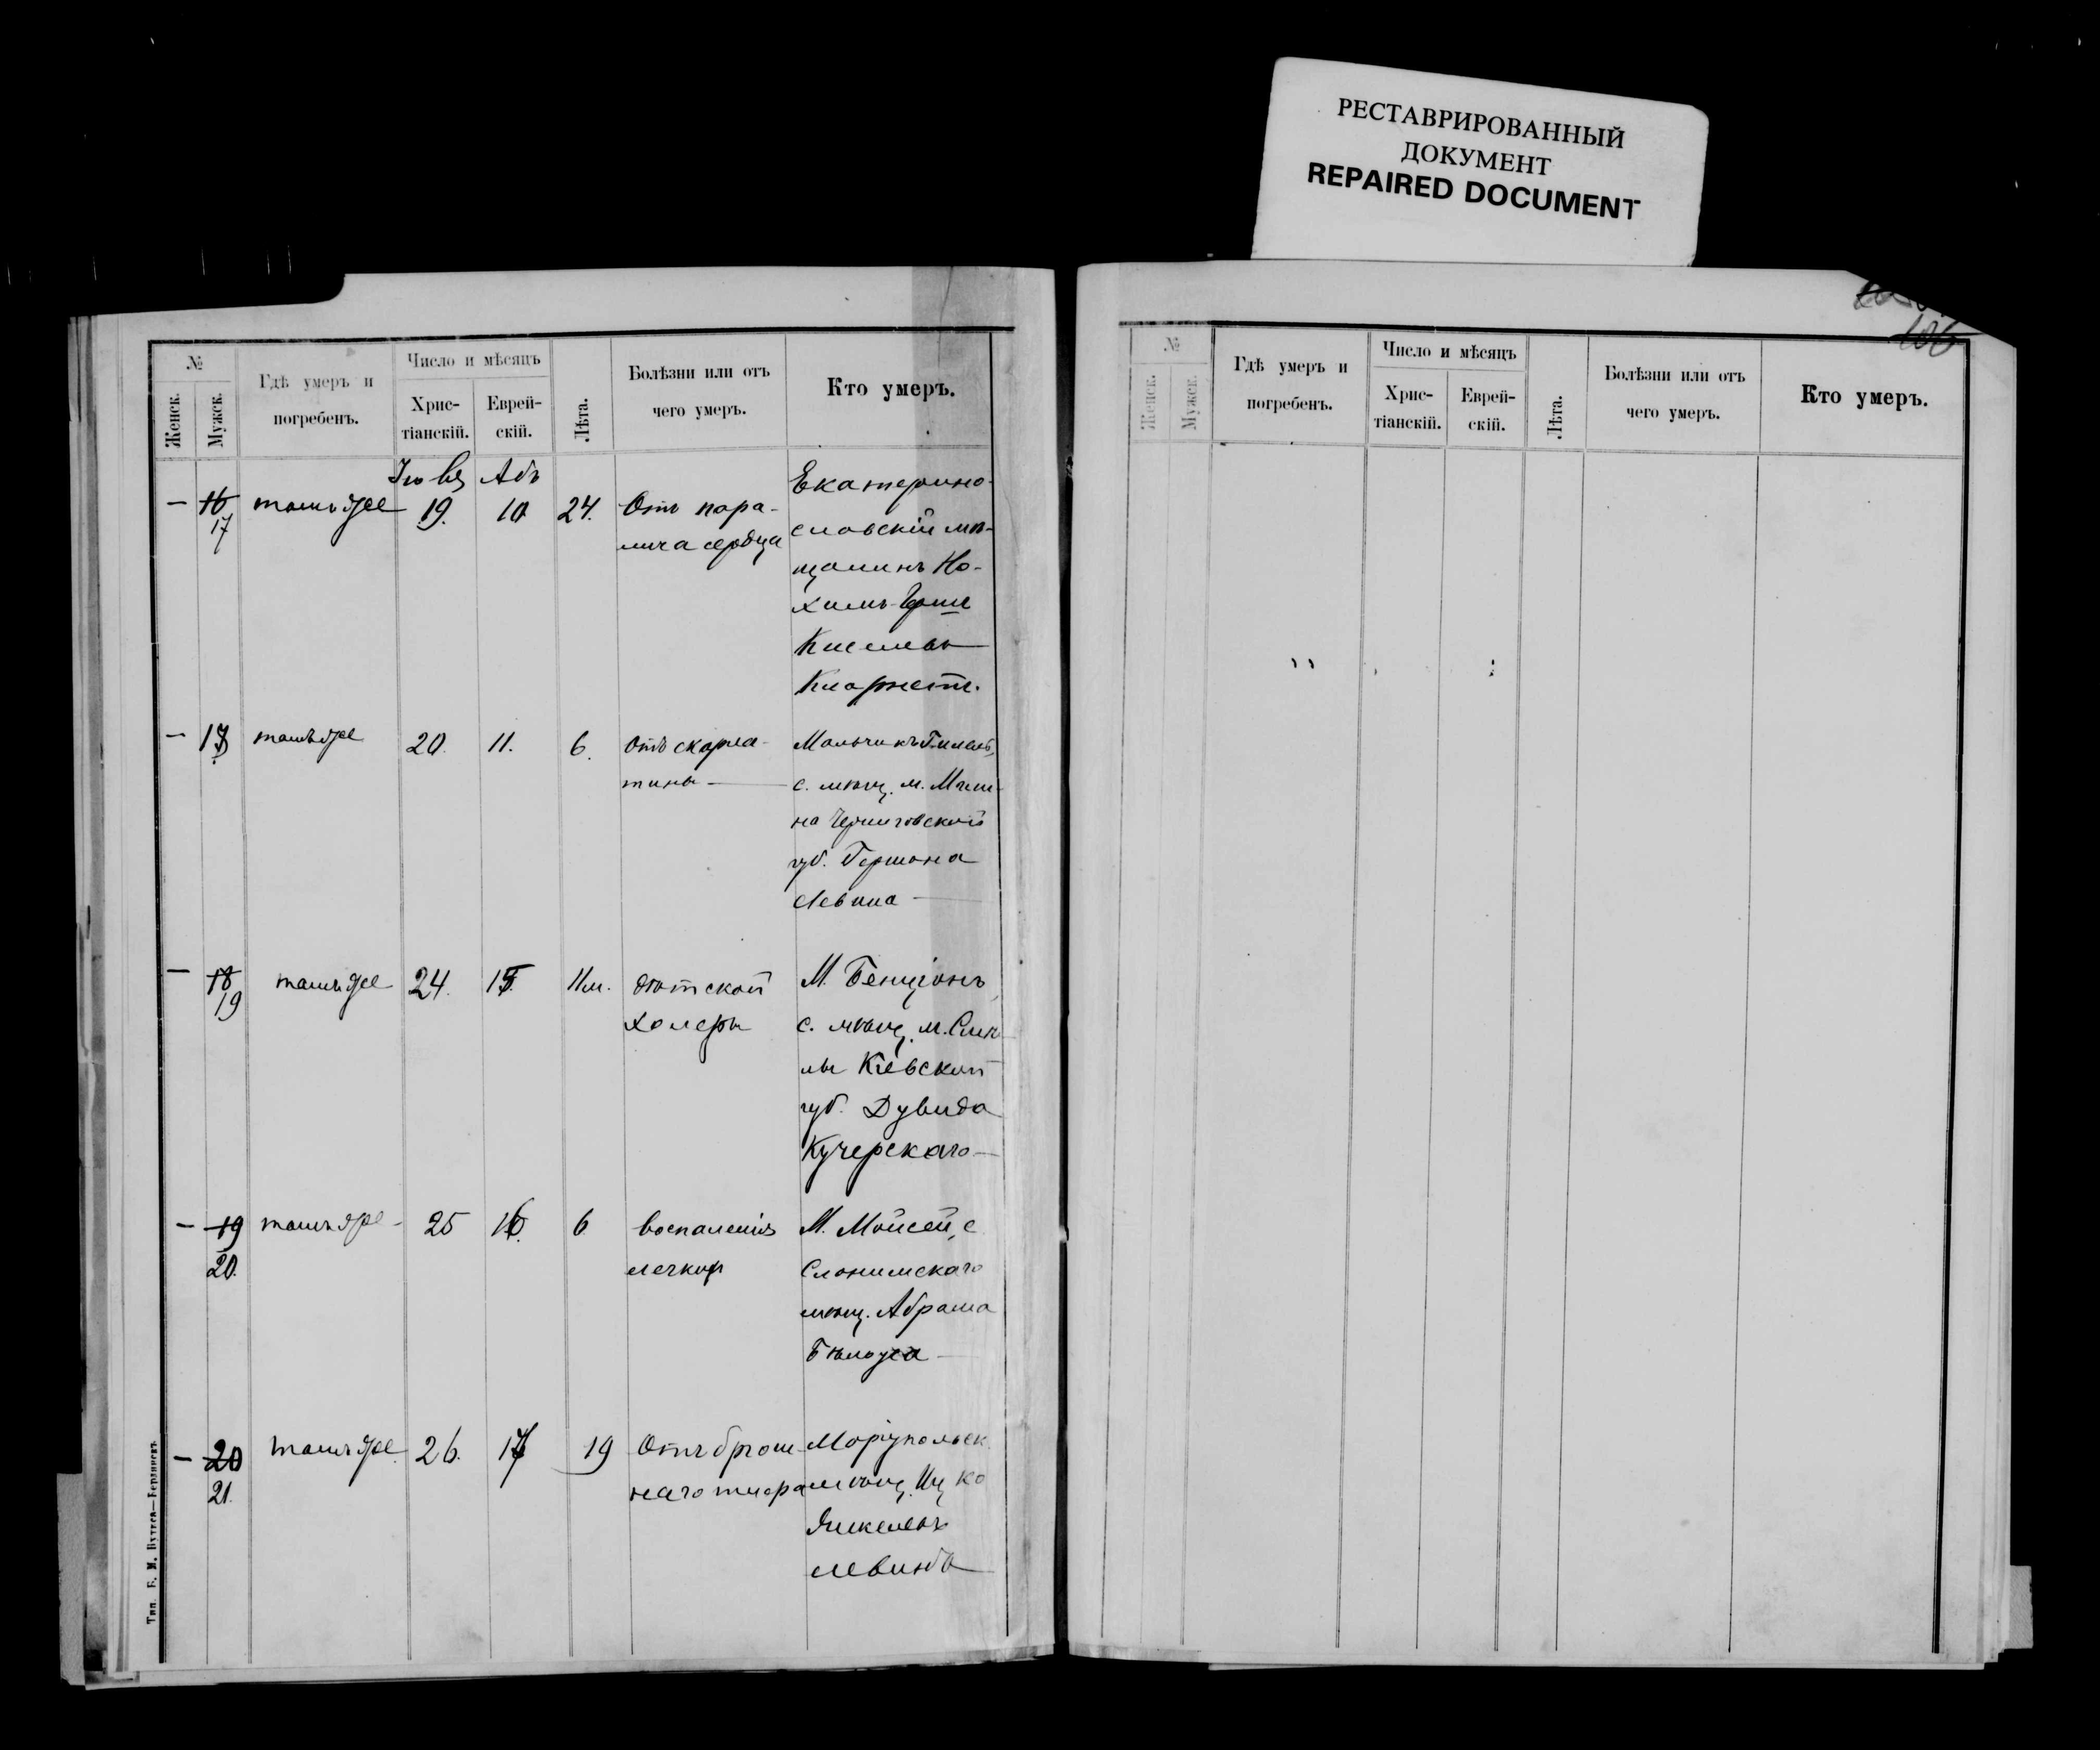 РЕСТАВРИРОВАННЫЙ
ДОКУМЕНТ
REPAIRED DOCUMENT
106
№
Женск.
Мужск.
Гдѣ умеръ и
погребенъ.
Число и мѣсяцъ
Хрис-
тіанскій.
Еврей-
скій.
Лѣта.
Болѣзни или отъ
чего умеръ.
Кто умеръ.
Абъ
— 16 17 тамъ же 19. 10 24. Отъ пара-
лича сердца
Екатерино-
славскій мѣ-
щанинъ Но-
химъ-Герш
Киселевъ
— 18 тамъ же 20. 11. 6. Отъ скарла-
тины —
Мальчикъ Гилель,
с. мѣщ. м. Мгли-
на Черниговской
губ. Гершона
Левина —
— 18 19 тамъ же 24. 15. 11 м. дѣтской
холеры
М. Бенціонъ,
с. мѣщ. м. Смѣ-
лы Кіевской
губ. Дувида
Кучерскаго —
— 19 20. тамъ же 25 16. 6 воспаленія
легких
М. Мойсей, с.
Слонимскаго
мѣщ. Абрама
Бѣлоуса —
— 20 21. тамъ же 26. 17 19 Отъ брюш-
наго тифа
Маріупольск.
мѣщ. Ицко
Янкелевъ
Левинъ
Тип. Г. М.
№
Женск.
Мужск.
Гдѣ умеръ и
погребенъ.
Число и мѣсяцъ
Хрис-
тіанскій.
Еврей-
скій.
Лѣта.
Болѣзни или отъ
чего умеръ.
Кто умеръ.